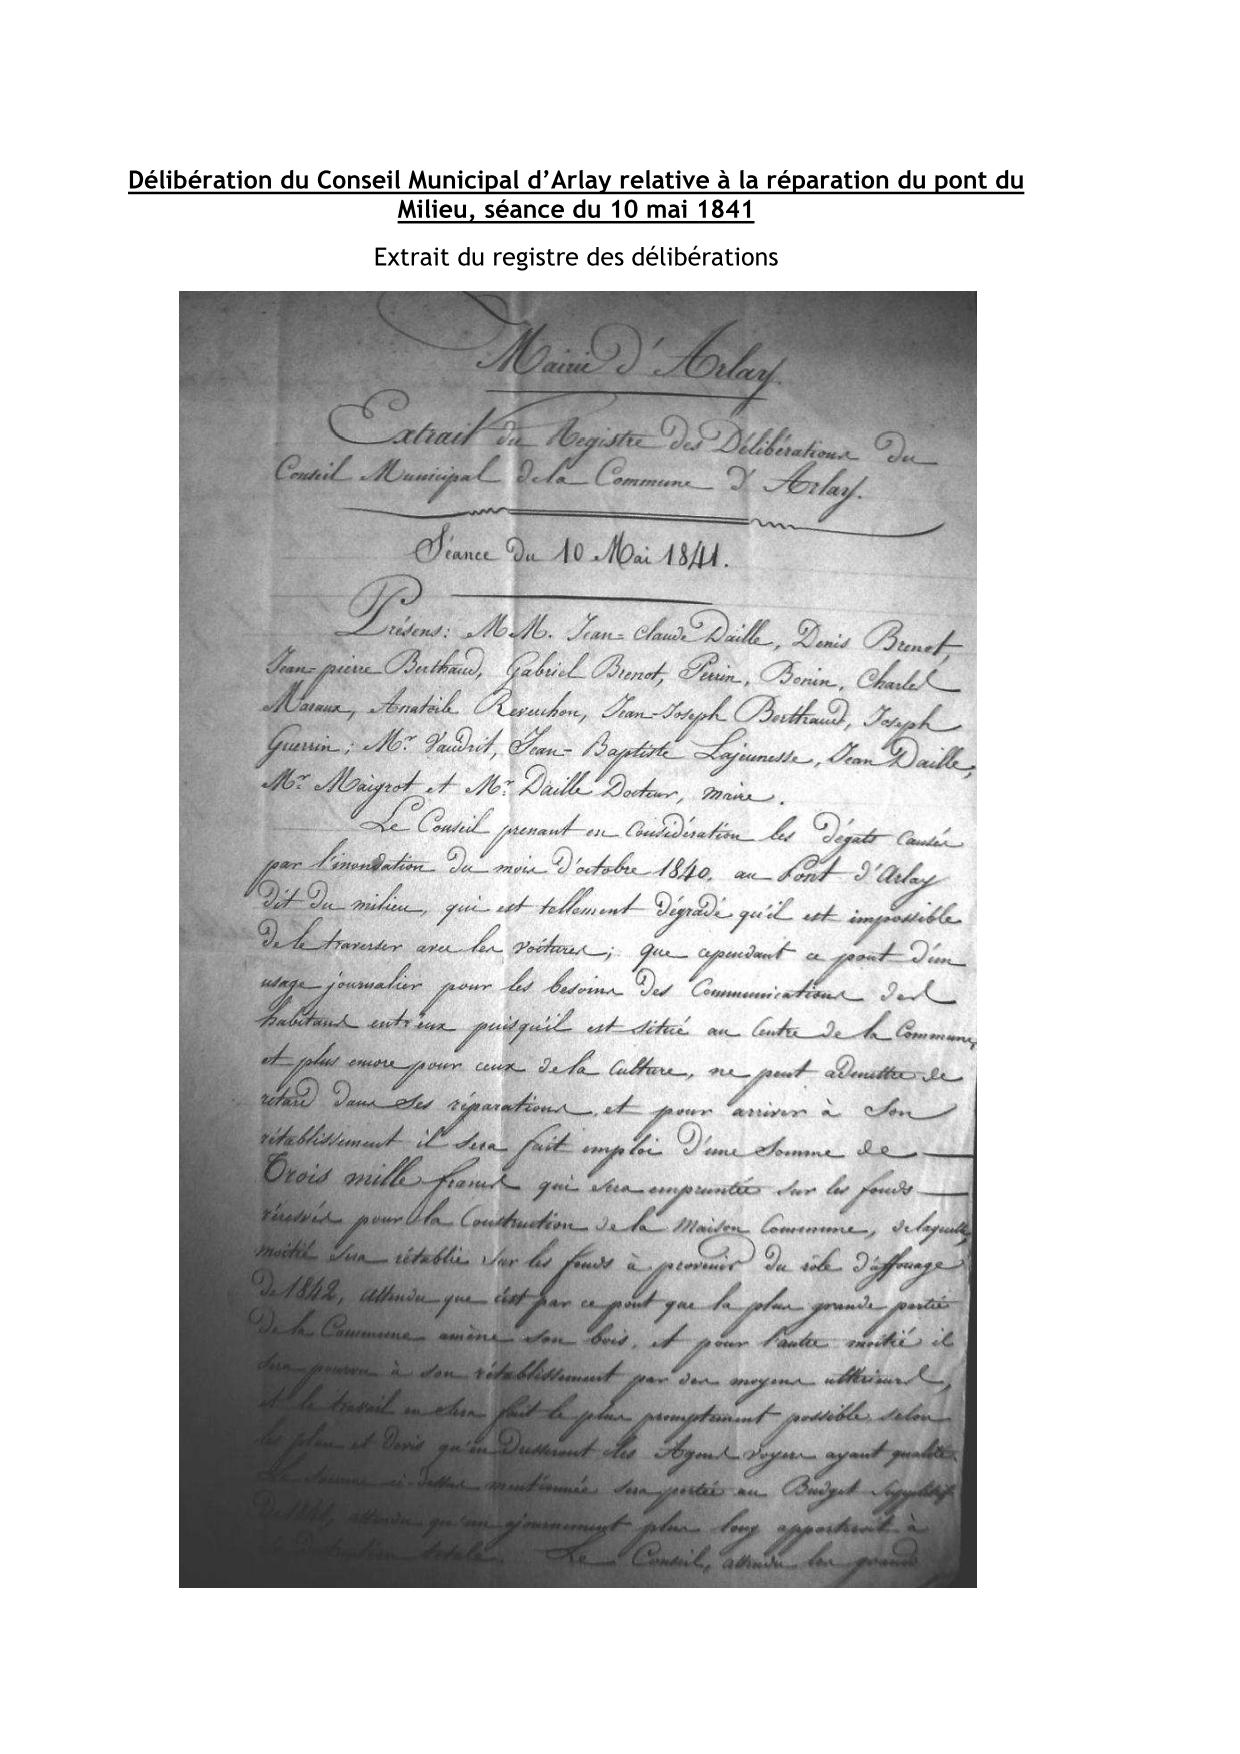 Délibération du Conseil Municipal d'Arlay relative à la réparation du pont du
Milieu, séance du 10 mai 1841
Extrait du registre des délibérations
Mairie d'Arlay.
Extrait du Registre des Délibérations du
Conseil Municipal de la Commune d'Arlay.
Séance du 10 Mai 1841.
Présens: MM. Jean-Claude Daille, Denis Brenot,
Jean-pierre Berthaud, Gabriel Brenot, Perrin, Bonin, Charles
Maraux, Anatoile Revuchon, Jean-Joseph Berthaud, Joseph
Guerrin; Mr. Vaudrit, Jean-Baptiste Lajeunesse, Jean Daille,
Mr. Maigrot et Mr. Daille Docteur, maire.
Le Conseil prenant en considération les dégats causés
par l'inondation du mois d'octobre 1840, au Pont d'Arlay
dit du milieu, qui est tellement dégradé qu'il est impossible
de le traverser avec les voitures; que cependant ce pont d'un
usage journalier pour les besoins des Communications des
habitans entr'eux puisqu'il est situé au Centre de la Commune,
et plus encore pour ceux de la Culture, ne peut admettre de
retard dans ses réparations, et pour arriver à son
rétablissement il sera fait emploi d'une somme de
Trois mille francs qui sera empruntée sur les fonds
réservés pour la Construction de la maison Commune, de laquelle
moitié sera rétablie sur les fonds à provenir du rôle d'affouage
de 1842, attendu que c'est par ce pont que la plus grande partie
de la Commune amène son bois, et pour l'autre moitié il
sera pourvu à son rétablissement par des moyens ultérieurs,
et le travail en sera fait le plus promptement possible selon
les plan et devis qu'en dresseront les Agens voyers ayant qualité.
La somme ci-dessus mentionnée sera portée au Budget
de 1841, attendu qu'un ajournement plus long apporterait à
destruction totale. Le Conseil, attendu les grands